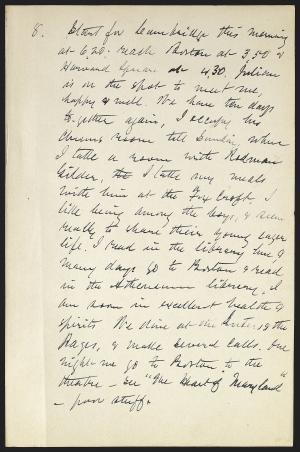 8. Start for Cambridge this morning
at 6.20: reach Boston at 3.50 &
Harvard Square at 4.30. Julian
is on the spot to meet me,
happy & well. We have ten days
together again, I occupy his
chums room till Sunday when
I take a room with Rodman
Gilder, I take my meals
with him at the Fox Croft. I
like being among the boys, & seem
really to share their young eager
life. I read in the library here, &
many days go to Boston & read
in the Athenaeum library. I
am soon in excellent health &
spirits. We dine at the
Pages, & make several calls. One
night we go to Boston to the
theatre – see "The Heart of Maryland"
– poor stuff.